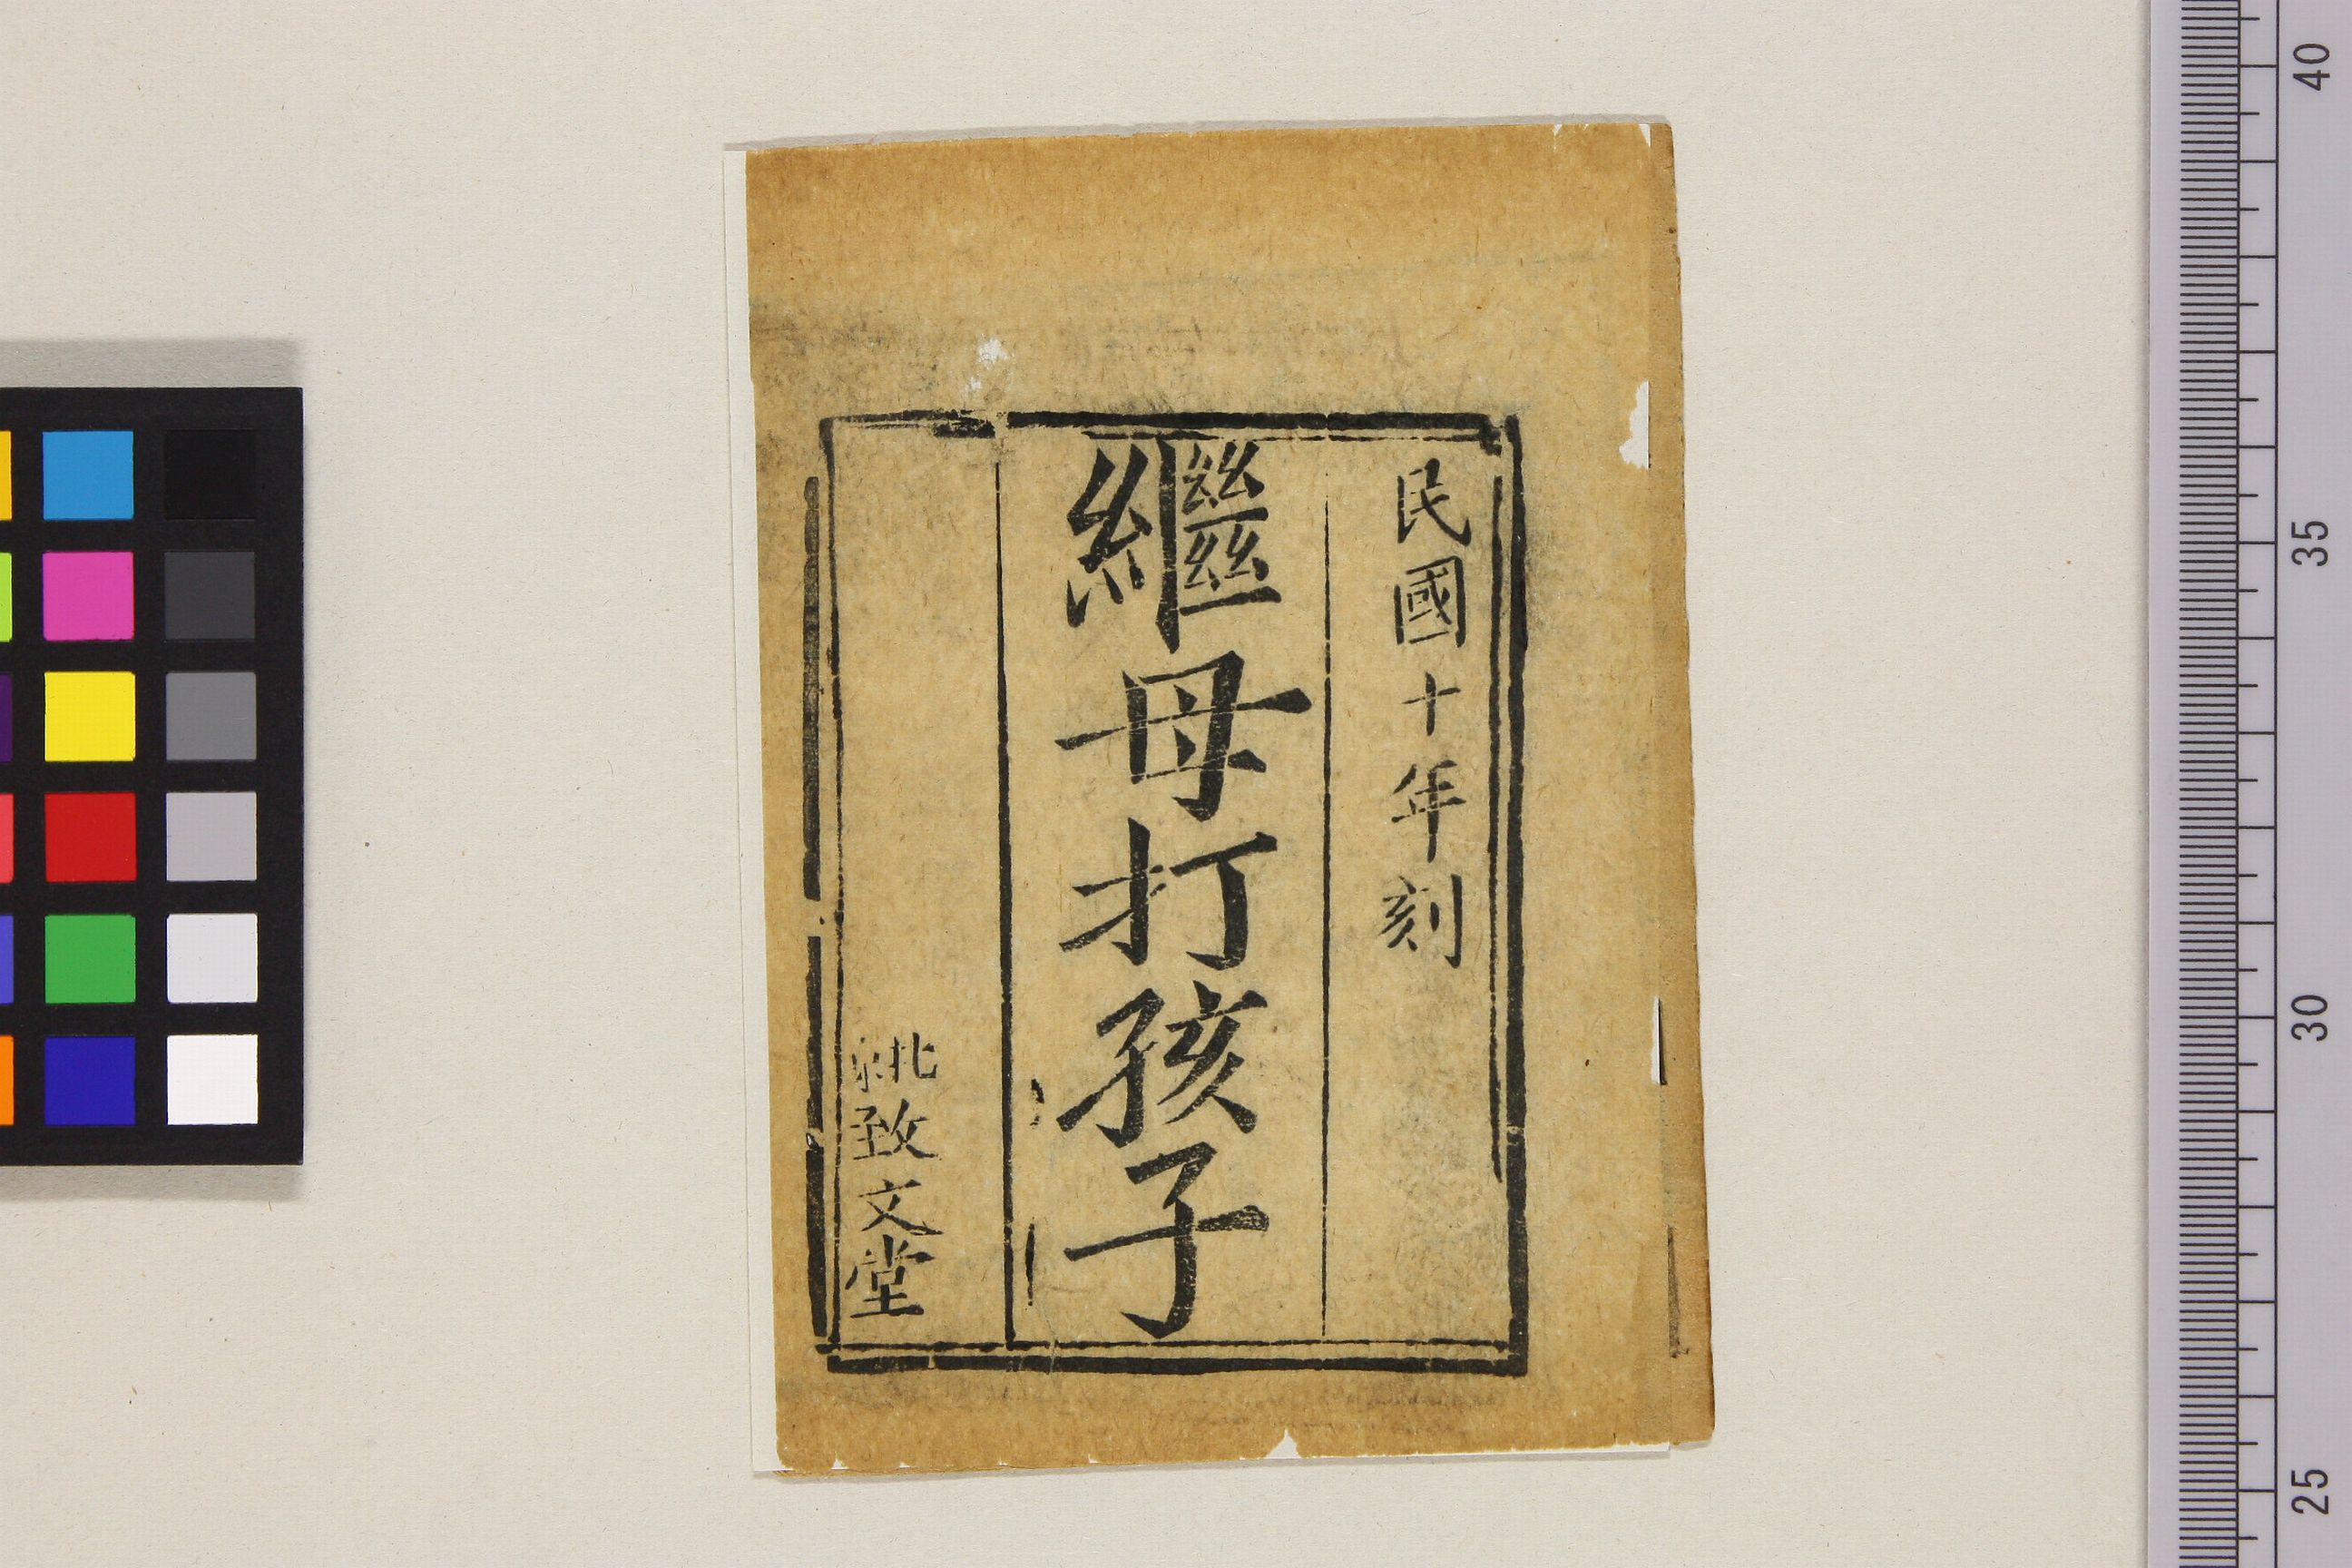 民國十年刻
繼母打孩子
致文堂
40
35
30
25